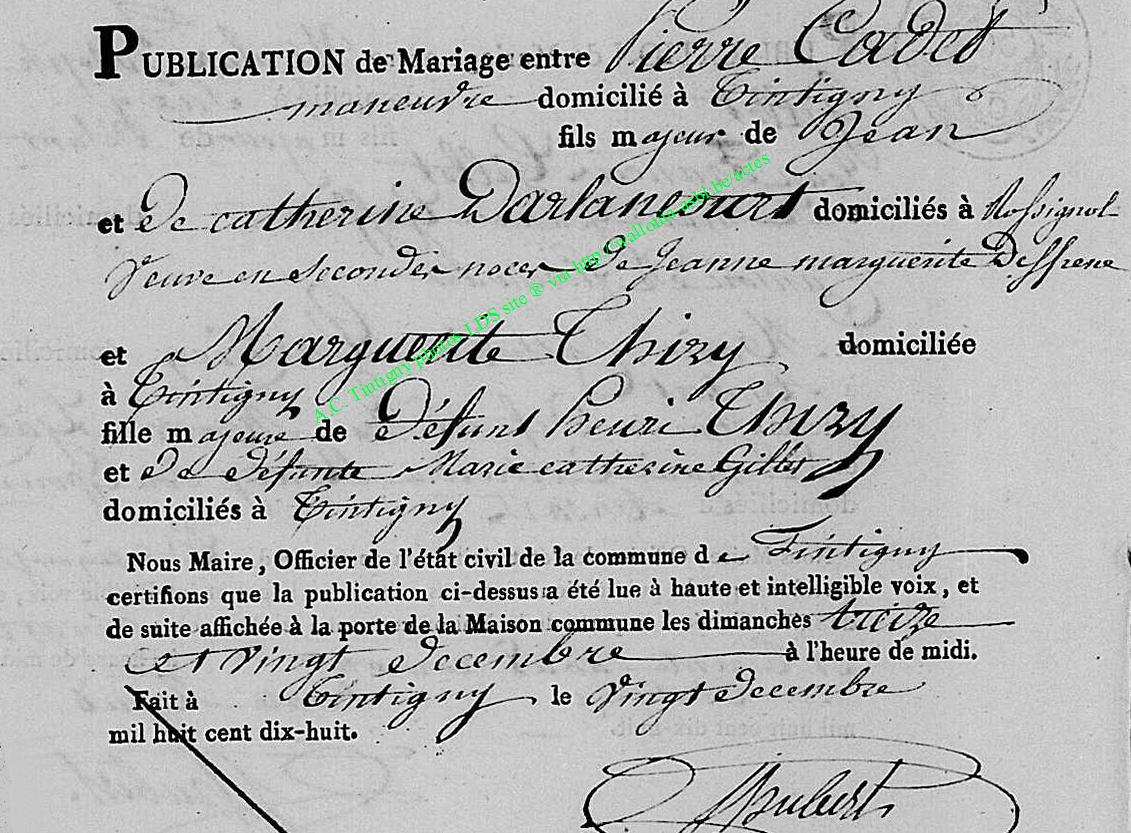 PUBLICATION de Mariage entre Pierre Cadet
maneuvre domicilié à Tintigny
fils majeur de Jean
et de catherine Darlancourt domiciliés à Rossignol
veuve en secondes noces de Jeanne marguerite Deffrene
et Marguerite Thiry domiciliée
à Tintigny
fille majeure de défunt henri Thiry
et de défunte Marie catherine Gillet
domiciliés à Tintigny
Nous Maire, Officier de l'état civil de la commune de Tintigny
certifions que la publication ci-dessus a été lue à haute et intelligible voix, et
de suite affichée à la porte de la Maison commune les dimanches treize
et vingt decembre à l'heure de midi.
Fait à Tintigny le vingt decembre
mil huit cent dix-huit.
A.C. Tintigny photos LDS site ® via